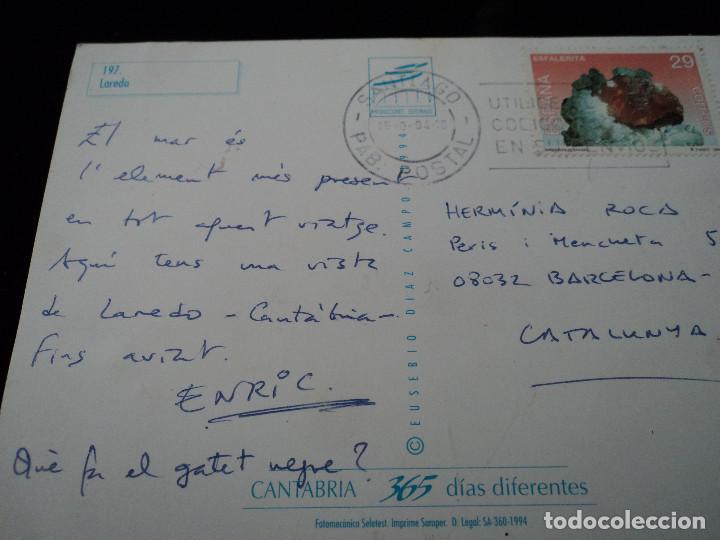 197.
Laredo
El mar és
l'element més present
en tot aquest viatge.
Aquí tens una vista
de Laredo - Cantàbria -
Fins aviat.
ENRIC.
Què fa el gatet negre?
SANTIAGO
PAB. POSTAL
UTILICE
CODIGO
EN SU
ESFALERITA
29
ESPAÑA
HERMÍNIA ROCA
Peris i Mencheta 5
08032 BARCELONA -
CATALUNYA
© EUSEBIO DIAZ CAMPO 1994
CANTABRIA 365 días diferentes
Fotomecánica Seletest. Imprime Samper. D. Legal: SA-360-1994
todocoleccion.net